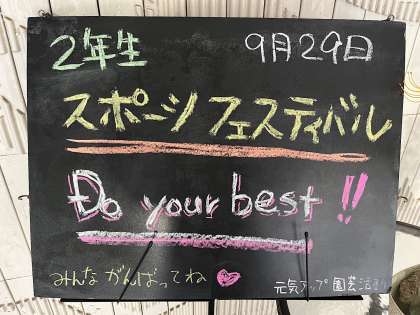 2年生 9月29日
スポーツフェスティバル
Do your best!!
みんながんばってね♥ 元気アップ 園芸活動